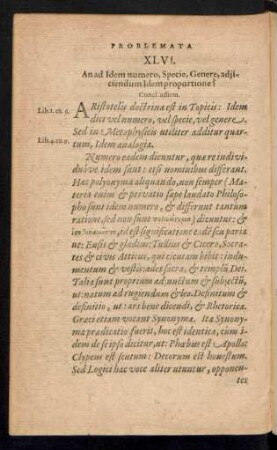 PROBLEMATA
XLVI.
An ad Idem numero, Specie, Genere, adji-
ciendum Idem proportione?
Concl. affirm.
Lib. 1. ca. 5. ARistotelis doctrina est in Topicis: Idem
dici vel numero, vel specie, vel genere.
Lib. 4. ca. 9. Sed in Metaphysicis utiliter additur quar-
tum, Idem analogia.
Numero eadem dicuntur, quæ re individi-
duo ve idem sunt: etsi nominibus differant.
Hæc polyonyma aliquando, non semper (Ma-
teria enim & privatio sæpe laudato Philoso-
pho sunt idem numero, & differunt tantum
ratione, sed non sunt) dicuntur: &
id est significatione eadem seu paria
ut: Ensis & gladius: Tullius & Cicero, Socra-
tes & civis Atticus, qui cicutam bibit: indu-
mentum & vestis: ædes sacra, & templū Dei.
Talia sunt proprium ad unctum & subjectū,
ut: natum ad rugiendum & leo. Definitum &
definitio, ut: ars bene dicendi, & Rhetorica.
Græci etiam vocant Synonyma. Ita Synony-
ma prædicatio fuerit, hoc est identica, cum i-
dem de se ipso dicitur, ut: Phœbus est Apollo:
Clypeus est scutum: Decorum est honestum.
Sed Logici hac voce aliter utuntur, opponen-
tes